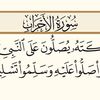 سُورَةُ الأَحْزَابِ
كَتَهُ يُصَلُّونَ عَلَى النَّبِيِّ
صَلُّوا عَلَيْهِ وَسَلِّمُوا تَسْلِي